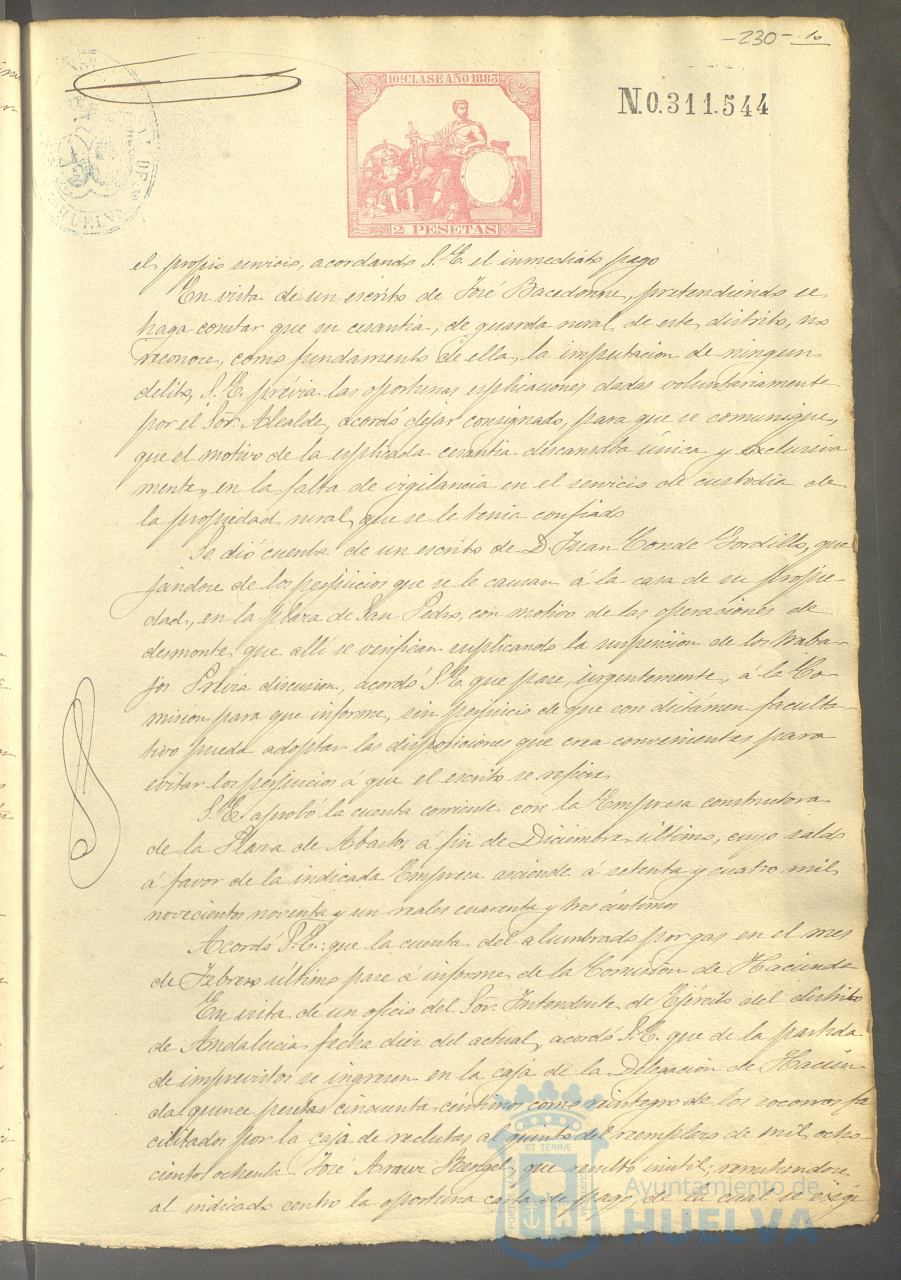 -230- 10
10ª CLASE AÑO 1883
N.0.311.544
2 PESETAS
HUELVA
el propio servicio, acordando S.E. el inmediato pago
En vista de un escrito de José Bacedonne, pretendiendo se
haga constar que su cesantia, de guarda rural, de este, distrito, no
reconoce, como fundamento de ella, la imputacion de ningun
delito, S.E. prévia las oportunas esplicaciones dadas voluntariamente
por el Sor. Alcalde, acordó dejar consignado, para que se comunique,
que el motivo de la esplicada cesantia descansaba única y exclusiva
mente, en la falta de vigilancia en el servicio de custodia de
la propiedad rural, que se le tenia confiado
Se dió cuenta de un escrito de D. Juan Conde Gordillo, que
jándose de los perjuicios que se le causan á la casa de su propie
dad, en la plaza de San Pedro, con motivo de las operaciones de
desmonte que allí se verifican suplicando la suspension de los traba-
jos. Prévia discusion, acordó S.E. que pase, urgentemente, á la Co-
mision para que informe, sin perjuicio de que con dictamen faculta-
tivo pueda adoptar las disposiciones que crea convenientes para
evitar los perjuicios á que el escrito se refiere
S.E. aprobó la cuenta corriente con la Empresa constructora
de la Plaza de Abastos á fin de Diciembre último, cuyo saldo
á favor de la indicada Empresa asciende á setenta y cuatro mil
novecientos noventa y un reales cuarenta y tres céntimos
Acordó S.E. que la cuenta del alumbrado por gas en el mes
de Febrero último pase á informe de la Comision de Hacienda
En vista de un oficio del Sor. Intendente de Ejército del distrito
de Andalucia fecha diez del actual, acordó S.E. que de la partida
de imprevistos se ingresen en la caja de la Delegacion de Hacien
da quince pesetas cincuenta centimos como reintegro de los socorros fa
cilitados por la caja de reclutas al quinto del reemplazo de mil ocho
cientos ochenta José Arauz que resultó inutil; remitiendose
al indicado centro la oportuna carta de pago, de la cual se exigi
Ayuntamiento de
HUELVA